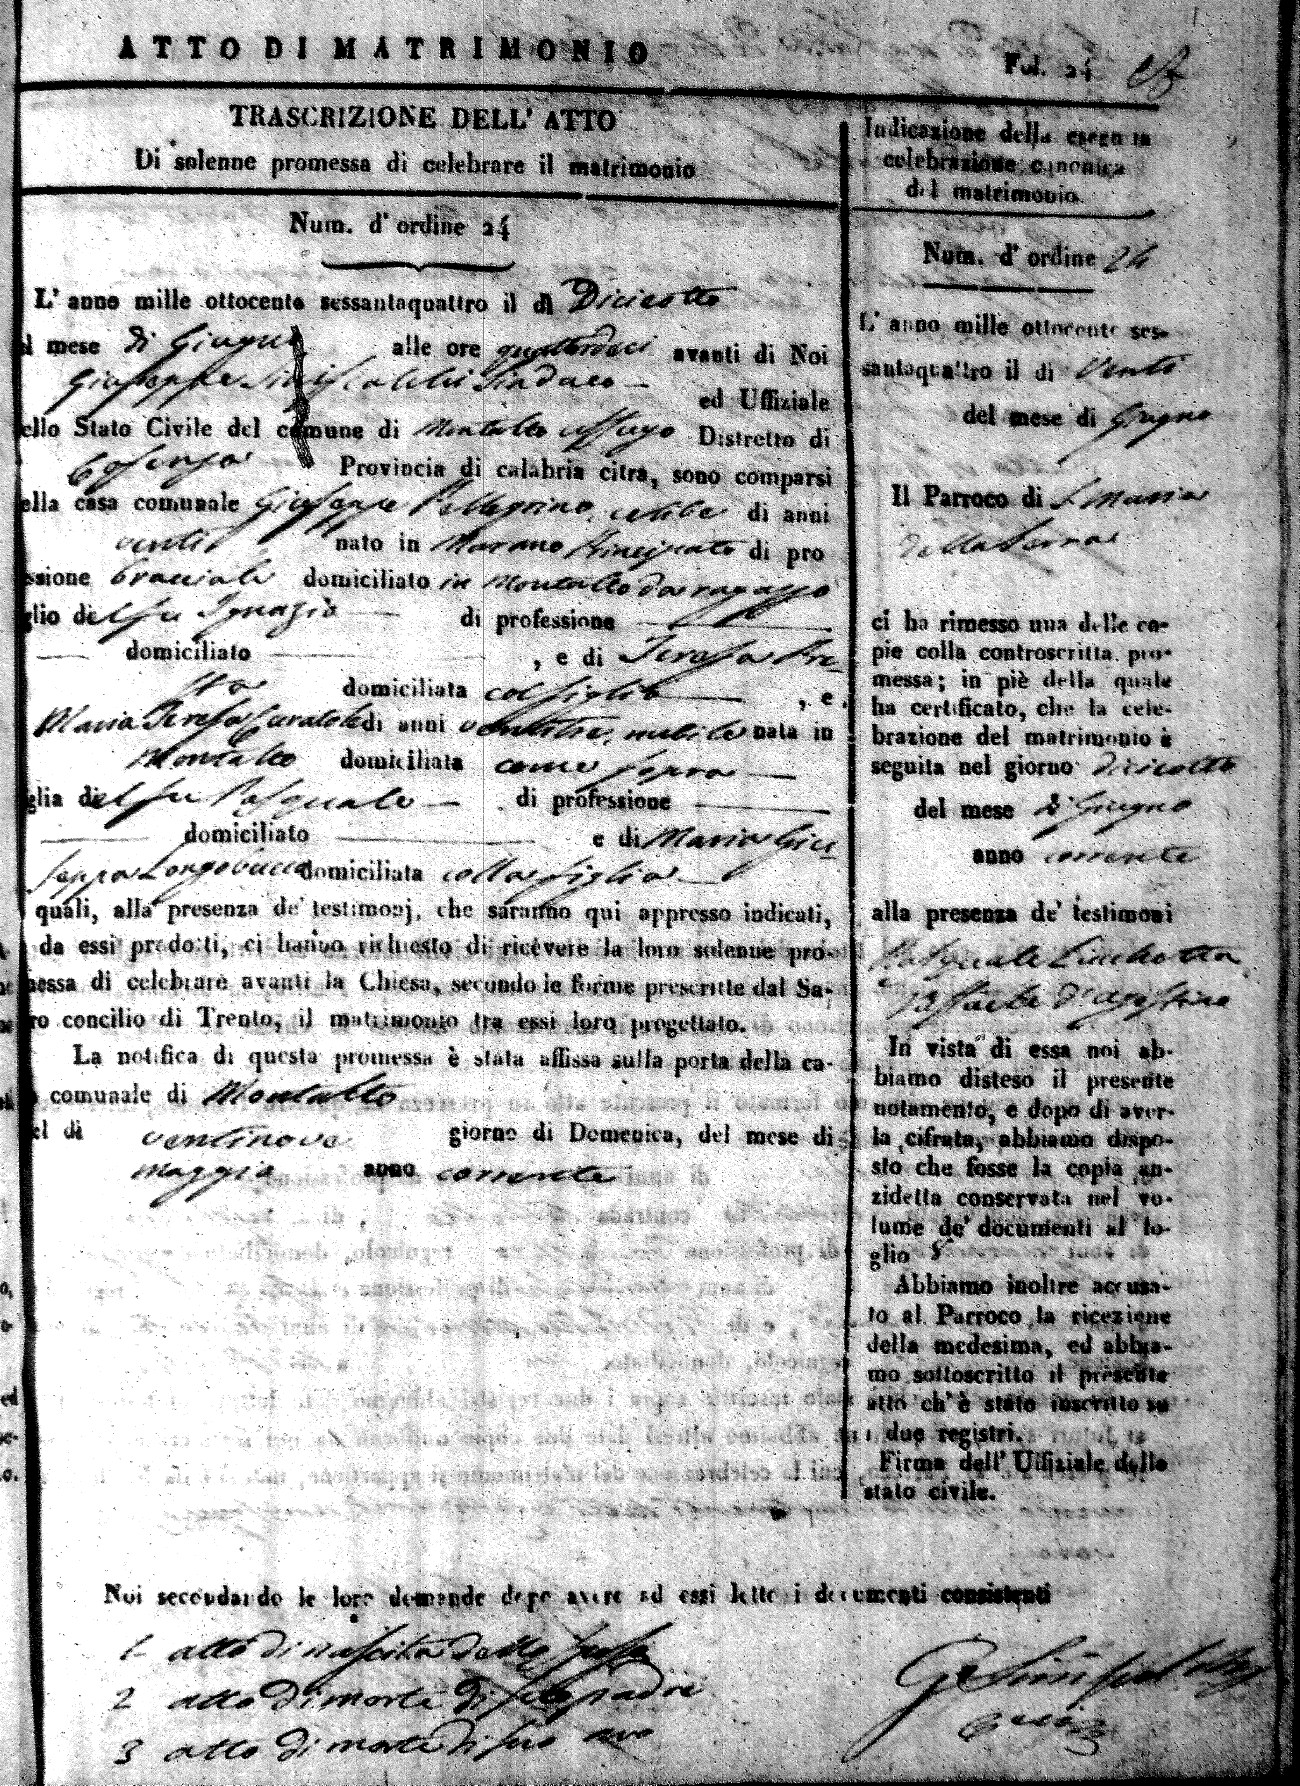 ATTO DI MATRIMONIO
Fol. 24
TRASCRIZIONE DELL' ATTO
Di solenne promessa di celebrare il matrimonio
Num. d' ordine 24
L' anno mille ottocento sessantaquattro il dì Diciotto
l mese di Giugno alle ore quattordeci avanti di Noi
Giuseppe Sindaco
ed Uffiziale
ello Stato Civile del comune di Montalto Uffugo Distretto di
Cosenza Provincia di calabria citra, sono comparsi
ella casa comunale Giuseppe Pellegrino celibe di anni
venti nato in Marano Principato di pro
ssione bracciale domiciliato in Montalto da ragazzo
glio del fu Ignazio di professione
domiciliato , e di Teresa Pre
sta domiciliata col figlio , e
Maria Teresa Curatolo di anni ventitre, nubile nata in
Montalto domiciliata come sopra
glia del fu Pasquale di professione
domiciliato e di Maria Giu
seppa Longobucco domiciliata colla figlia
quali, alla presenza de' testimonj, che saranno qui appresso indicati,
da essi prodotti, ci hanno richiesto di ricevere la loro solenne pro-
messa di celebrare avanti la Chiesa, secondo le forme prescritte dal Sa-
ro concilio di Trento, il matrimonio tra essi loro progettato.
La notifica di questa promessa è stata affissa sulla porta della ca-
comunale di Montalto
el dì ventinove giorno di Domenica, del mese di
maggio anno corrente
Indicazione della
celebrazione canonica
del matrimonio.
Num. d' ordine 24
L' anno mille ottocento ses-
santaquattro il di Venti
del mese di Giugno
Il Parroco di S. Maria
della Serra
ci ha rimesso una delle co-
pie colla controscritta pro-
messa; in piè della quale
ha certificato, che la cele-
brazione del matrimonio è
seguita nel giorno diciotto
del mese di Giugno
anno corrente
alla presenza de' testimoni
Pasquale
Raffaele d'Agostino
In vista di essa noi ab-
biamo disteso il presente
notamento, e dopo di aver-
la cifrata, abbiamo dispo-
sto che fosse la copia an-
zidetta conservata nel vo-
lume de' documenti al fo-
glio
Abbiamo inoltre accusa-
to al Parroco la ricezione
della medesima, ed abbia-
mo sottoscritto il presente
atto ch' è stato inscritto su
i due registri.
Firma dell' Uffiziale dello
stato civile.
Noi secondando le loro demande dopo avere ad essi lette i documenti consistenti
1 atto di nascita dello sposo
2 atto di morte di suo padre
3 atto di morte di suo avo